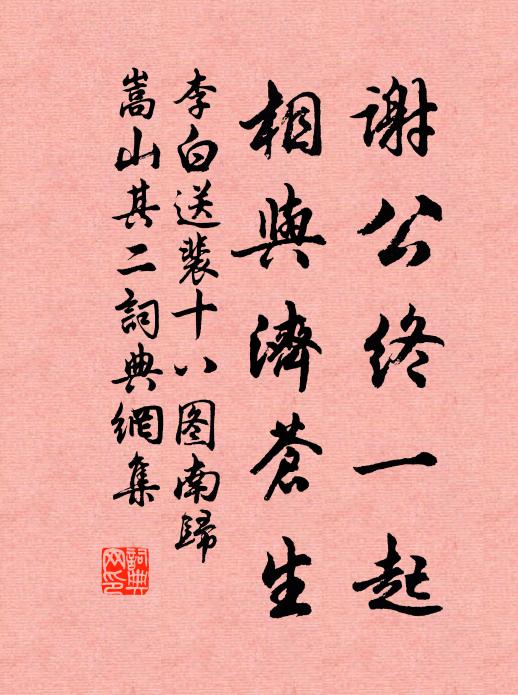 謝公終一起
相與濟蒼生
李白送裴十八图南歸
嵩山其二詞典網集
詞典网印